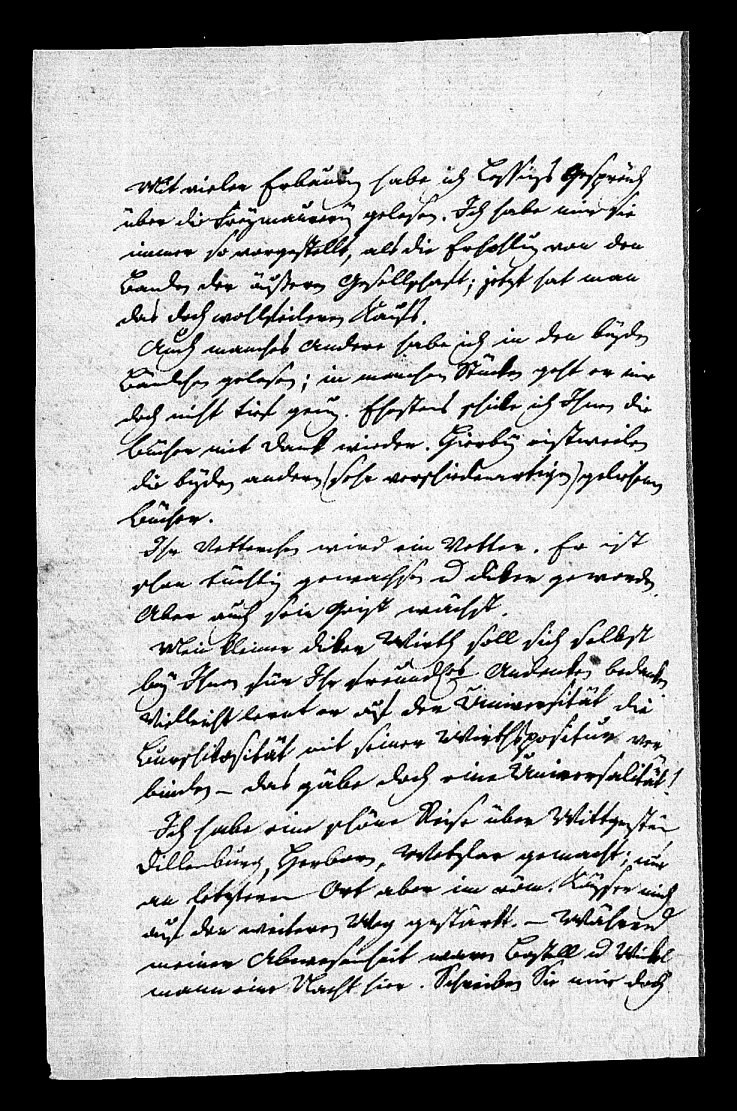 Mit vieler Erbauung habe ich Lessings Gespräch
über die Freymaurerey gelesen. Ich habe mir sie
immer so vorgestellt, als die Erhohlung von den
Banden der äussern Gesellschaft; jetzt hat man
das doch wohlfeileren Kaufs.
Auch manches Andere habe ich in den beyden
Bändchen gelesen; in manchen Stücken geht er mir
doch nicht tief genug. Ehestens schicke ich Ihnen die
Bücher mit Dank wieder. Hierbey einstweilen
die beyden andern (sehr verschiedenartigen) gelesenen
Bücher.
Ihr Vetterchen wird ein Vetter. Er ist
schon tüchtig gewachsen u dicker geworden.
Aber auch sein Geist wächst.
Mein kleiner dicker Wirth soll sich selbst
bey Ihnen für Ihr freundliches Andenken bedanken
Vielleicht lernt er auf der Universität die
Burschikosität mit seiner Wirthspositur ver
binden – das gäbe doch eine Universalität!
Ich habe eine schöne Reise über Wittgenstein
Dillenburg, Herborn, Wetzlar gemacht; mir
an letzterm Ort aber im röm. Kayser mich
auf den weiteren Weg gestärkt. – Während
meiner Abwesenheit waren u Winkel
mann eine Nacht hier. Schreiben Sie mir doch